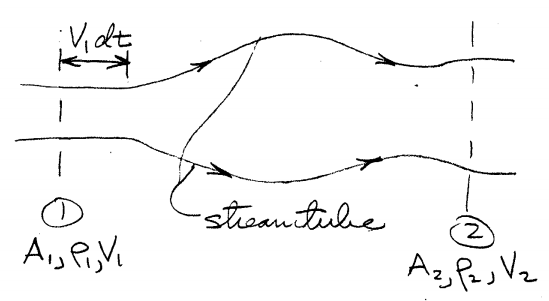 V₁dt
streamtube
①
②
A₁, ρ₁, V₁
A₂, ρ₂, V₂